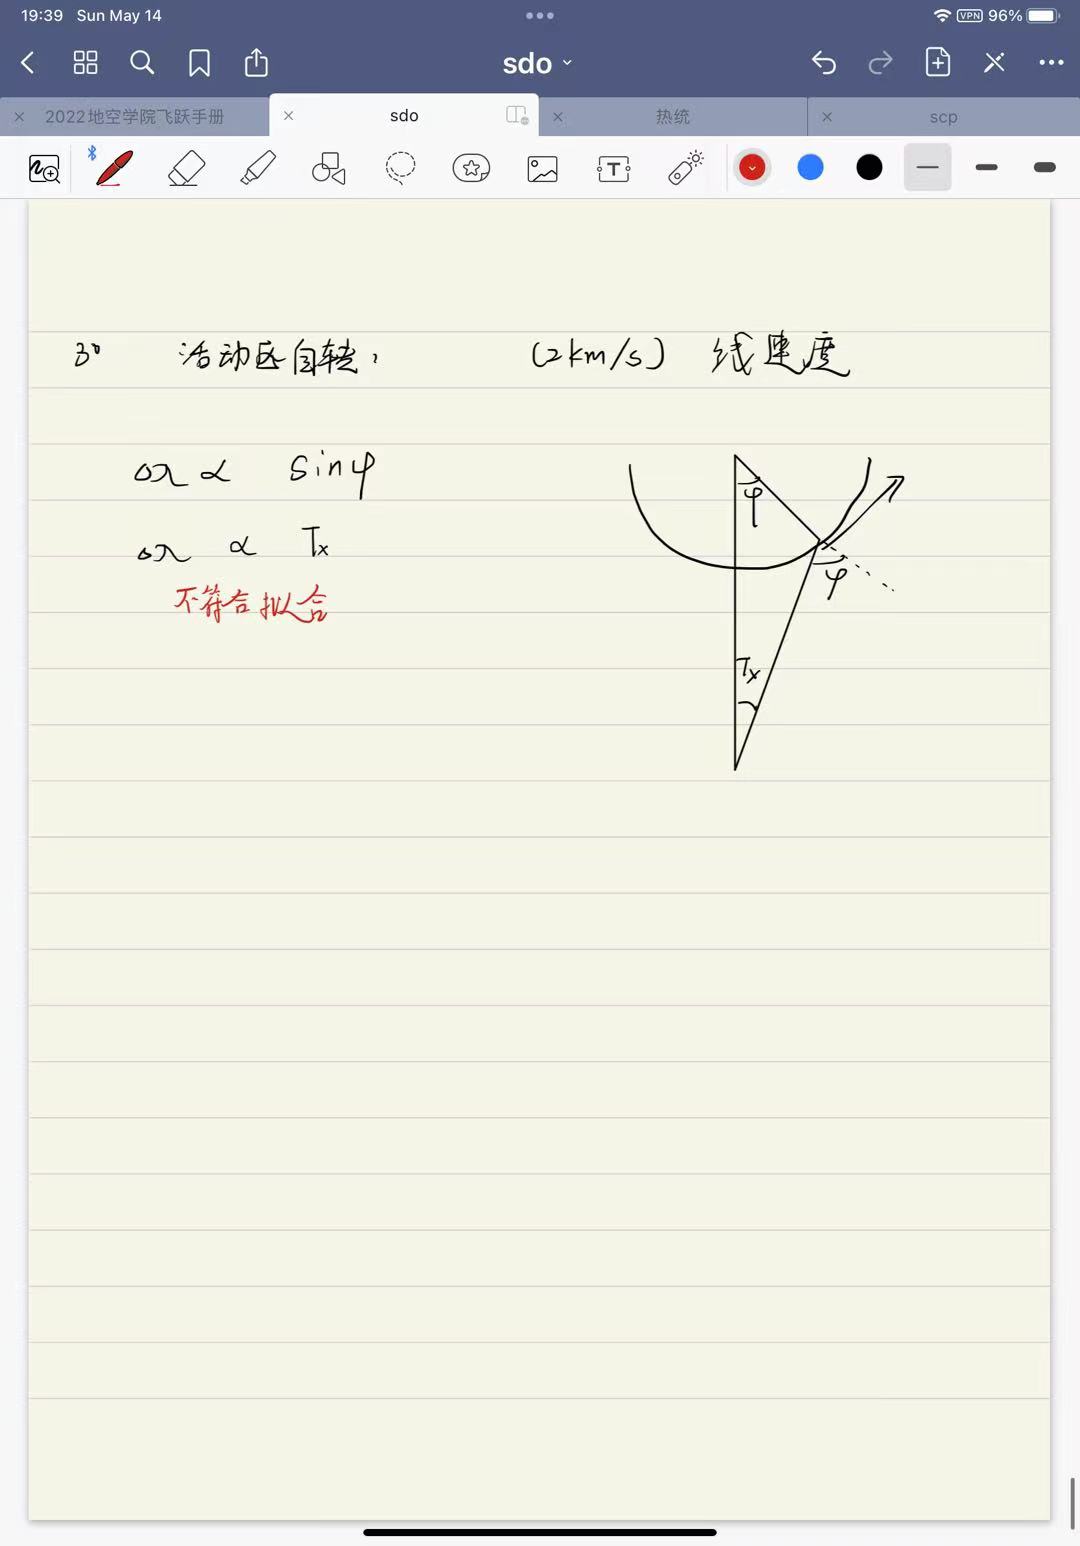 19:39 Sun May 14
VPN 96%
sdo
2022地空学院飞跃手册
sdo
热统
scp
T
3° 活动区自转, (2km/s) 线速度
∝ sinφ
∝ Tx
不符合拟合
φ
φ
Tx